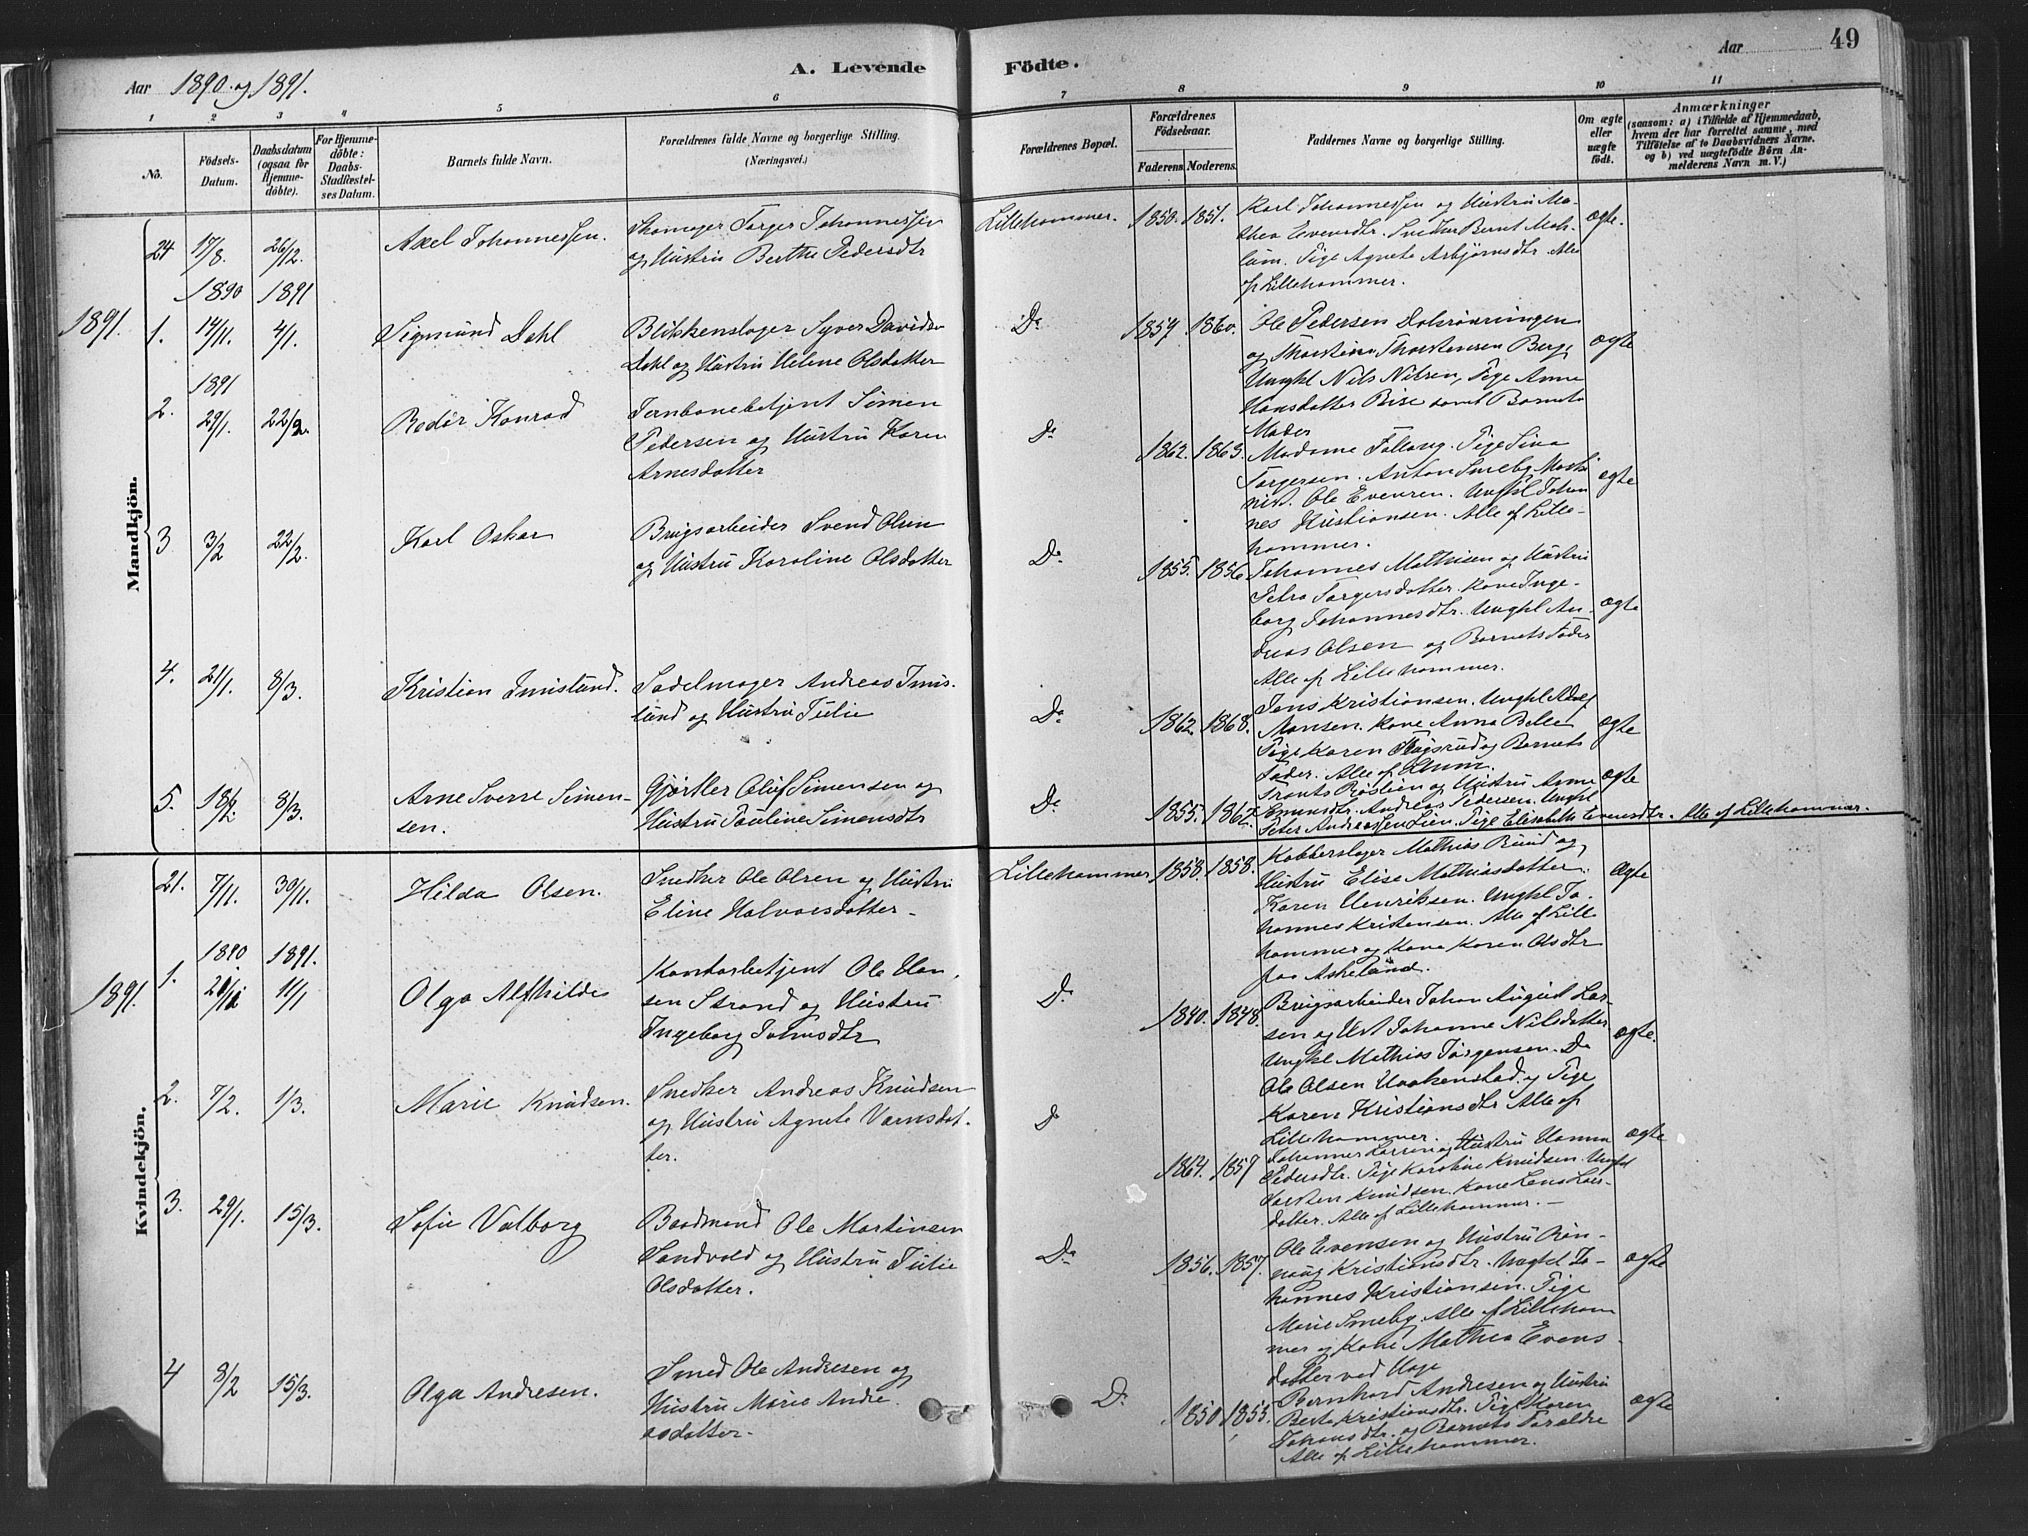 Aar 1890 og 1891.
A. Levende Födte.
Aar 49
1 2 3 4 5 6 7 8 9 10 11
No.
Födsels-Datum.
Daabsdatum (ogsaa for Hjemmedöbte).
For Hjemmedöbte: Daabs-Stadfæstelses Datum.
Barnets fulde Navn.
Forældrenes fulde Navne og borgerlige Stilling. (Næringsvei.)
Forældrenes Bopæl.
Forældrenes Födselsaar.
Faderens. Moderens.
Faddernes Navne og borgerlige Stilling.
Om ægte eller uægte födt.
Anmærkninger
(saasom: a) i Tilfælde af Hjemmedaab, hvem der har forrettet samme, med Tilföielse af to Daabsvidners Navne, og b) ved uægtefödte Börn Anmelderens Navn m. V.)
Mandkjön.
24 17/8. 26/12. Axel Johannessen.
Skomager Torger Johannessen
og Hustru Berthe Pedersdtr
Lillehammer. 1850. 1851.
Karl Johannessen og Hustru Ma-
thea Evensdtr. Snedker Bernt Moh-
lum. Pige Agnete Asbjørnsdtr Alle
af Lillehammer.
ægte.
1890 1891
1891.
1. 14/11. 4/1. Sigmund Dahl
Blikkenslager Syver Davidsen
Dahl og Hustru Helene Olsdatter
Do 1859. 1860.
Ole Pedersen
og Thorstina Thorstensen Berg,
Ungkl Nils Nilsen, Pige Anne
Hansdatter Bise samt Barnets
Moder
ægte
1891
2. 29/1. 22/2. Rodør Konrad
Jernbanebetjent Simen
Pedersen og Hustru Karen
Arnesdatter
Do 1862. 1863.
Madame Fallang. Pige Lina
Torgersen. Anton Smeby Maski
nist. Ole Evensen. Ungkl Johan
nes Kristiansen. Alle af Lille-
hammer.
ægte
3 3/2 22/2. Karl Oskar
Brugsarbeider Svend Olsen
og Hustru Karoline Olsdatter
Do 1855. 1856
Johannes Mathisen og Hustru
Petra Torgersdatter. Kone Inge-
borg Johannesdtr. Ungkl An-
dreas Olsen og Barnets Fader
Alle af Lillehammer.
ægte
4. 21/1. 8/3. Kristian Imislund.
Sadelmager Andreas Imis-
lund og Hustru Julie
Do 1862. 1868.
Jens Kristiansen. Ungkl Adolf
Monsen. Kone Anna Belle
Pige Karen og Barnets
Fader. Alle af Lhmr.
ægte
5. 18/2. 8/3. Arne Sverre Simen-
sen.
Gjørtler Oluf Simensen og
Hustru Pauline Simensdtr
Do 1855. 1862.
Frants Røslien og Hustru Anne
Andreas Pedersen. Ungkl
Peter Andreassen Lien. Pige Elisabeth Evensdtr. Alle af Lillehammer.
ægte
Kvindekjön.
21. 7/11. 30/11. Hilda Olsen.
Snedker Ole Olsen og Hustru
Eline Halvorsdatter.
Lillehammer 1858. 1858.
Kobberslager Mathias Rund og
Hustru Elise Mathiasdatter.
Karen Henriksen. Ungkl Jo-
hannes Kristensen. Alle af Lille
hammer og Kone Karen Olsdtr
fra Askelund.
ægte
1890 1891.
1891.
1. 11/1 Olga Alfhilde
Kontorbetjent Ole Han-
sen Strand og Hustru
Ingeborg Johnsdtr
Do 1840. 1848.
Brugsarbeider Johan August Lar-
sen og Hust Johanne Nilsdatter
Ungkl Mathias Jørgensen. Do
Ole Olsen Haakenstad og Pige
Karen Kristiansdtr Alle af
Lillehammer.
ægte.
2. 7/2. 1/3. Marie Knudsen.
Snedker Andreas Knudsen
og Hustru Agnete Varnsdat-
ter.
Do 1864. 1857
Johannes Larsen og Hustru Hanna
Pedersdtr. Pige Karoline Knudsen. Ungkl
Torsten Knudsen. Kone Lena Lars-
datter. Alle af Lillehammer.
ægte
3. 29/1. 15/3. Sofie Valborg
Baadmand Ole Martinsen
Sandvold og Hustru Julie
Olsdatter.
Do 1856. 1857.
Ole Evensen og Hustru Røn-
naug Kristiansdtr. Ungkl Jo-
hannes Kristiansen. Pige
Marie Smeby Alle af Lilleham
mer og Kone Mathea Evens
datter ved Hage
ægte
4 8/2 15/3. Olga Andresen.
Smed Ole Andresen og
Hustru Marie Andre-
asdatter.
Do 1850 1855.
Bernhard Andresen og Hustru
Berte Kristiansdtr. Pige Karen
Johansdtr. og Barnets Forældre
Alle af Lillehammer.
ægte